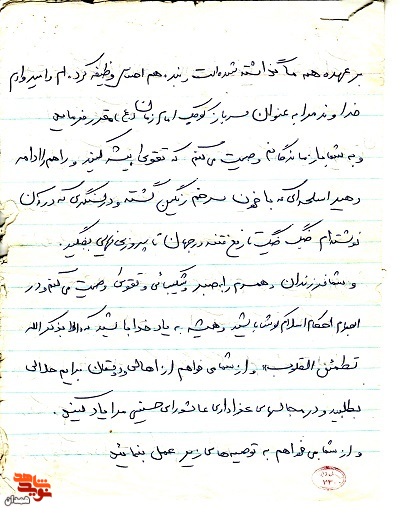 بر عهده همه ما گذاشته شده است بنده هم احساس وظیفه کرده ام و امیدوارم
خداوند مرا به عنوان سرباز کوچک امام زمان (عج) مقرر فرماید
و به شما بازماندگانم وصیت می کنم که تقوی پیشه کنید و راهم را ادامه
دهید اسلحه ای که با خون سرخم رنگین گشته و در سنگری که در آن
نوشته ام جنگ جنگ تا رفع فتنه در جهان تا پیروزی نهایی بگیرید.
و شما فرزندان و همسرم را به صبر و شکیبائی و تقوی وصیت می کنم و در
اجرای احکام اسلام کوشا باشید و همیشه به یاد خدا باشید که الا بذکر الله
تطمئن القلوب و از شما می خواهم از اهالی و دوستان برایم حلالی
بطلبید و در مجالسهای عزاداری عاشورای حسینی مرا یاد کنید.
و از شما می خواهم به توصیه های زیر عمل بنمائید
۲۳
نوید شاهد
همدان